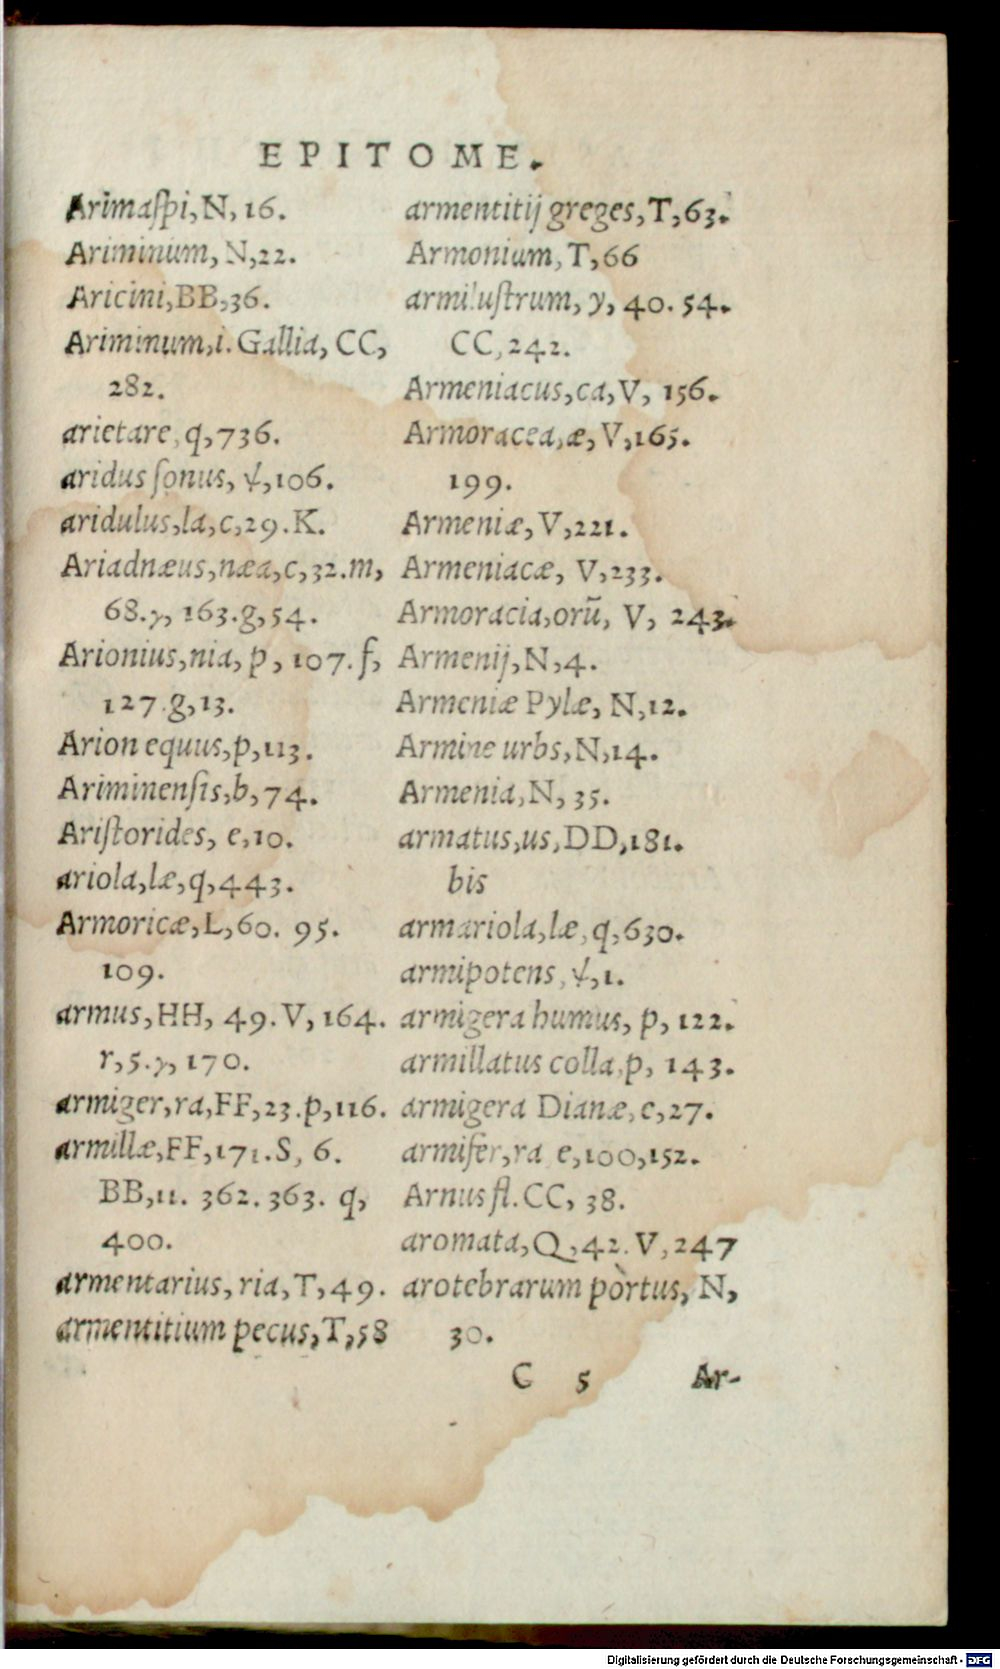 EPITOME.
Arimaſpi, N, 16.
Ariminum, N, 22.
Aricini, BB, 36.
Ariminum, i. Gallia, CC,
282.
arietare, q, 736.
aridus ſonus, ψ, 106.
aridulus, la, c, 29. K.
Ariadnæus, næa, c, 32. m,
68. γ, 163. g, 54.
Arionius, nia, p, 107. f,
127. g, 13.
Arion equus, p, 113.
Ariminenſis, b, 74.
Ariſtorides, e, 10.
ariola, læ, q, 443.
Armoricæ, L, 60. 95.
109.
armus, HH, 49. V, 164.
r, 5. γ, 170.
armiger, ra, FF, 23. p, 116.
armillæ, FF, 171. S, 6.
BB, 11. 362. 363. q,
400.
armentarius, ria, T, 49.
armentitium pecus, T, 58
armentitij greges, T, 63.
Armonium, T, 66
armiluſtrum, y, 40. 54.
CC, 242.
Armeniacus, ca, V, 156.
Armoracea, æ, V, 165.
199.
Armeniæ, V, 221.
Armeniacæ, V, 233.
Armoracia, orū, V, 243.
Armenij, N, 4.
Armeniæ Pylæ, N, 12.
Armine urbs, N, 14.
Armenia, N, 35.
armatus, us, DD, 181.
bis
armariola, læ, q, 630.
armipotens, ψ, 1.
armigera humus, p, 122.
armillatus colla, p, 143.
armigera Dianæ, c, 27.
armifer, ra e, 100, 152.
Arnus fl. CC, 38.
aromata, Q, 42. V, 247
arotebrarum pòrtus, N,
30.
C 5 Ar-
Digitalisierung gefördert durch die Deutsche Forschungsgemeinschaft - DFG